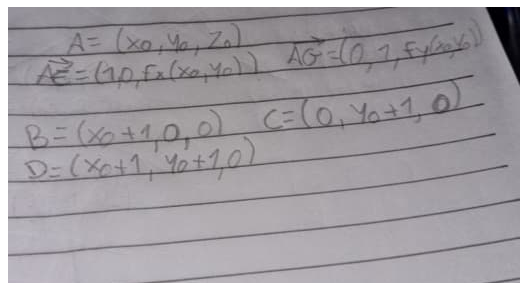 A = (x₀, y₀, z₀)
AE⃗ = (1,0, fx(x₀, y₀)) AG⃗ = (0, 1, fy(x₀, y₀))
B = (x₀+1, 0, 0) C = (0, y₀+1, 0)
D = (x₀+1, y₀+1, 0)